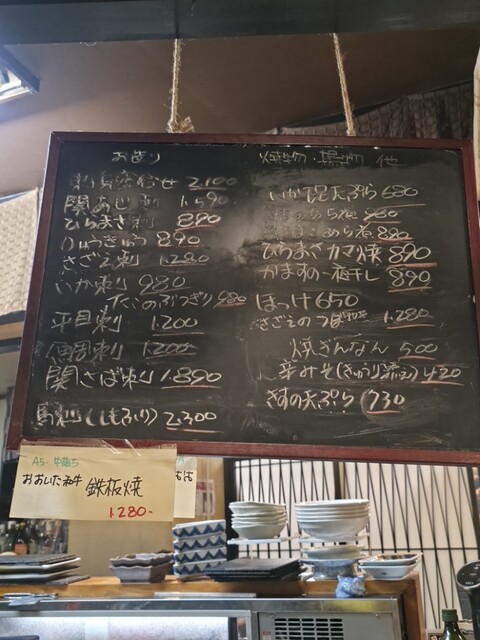 お造り
刺身盛合せ 2,100
関あじ刺 1,590
ひらまさ刺 890
りゅうきゅう 890
さざえ刺 1,280
いか刺り 980
たこのぶつぎり 980
平目刺 1,200
1,200
関さば刺 1,890
馬刺(しもふり) 2,300
焼物・揚物 他
いかげそ天ぷら 680
あら煮 980
あら煮 890
ひらまさカマ焼 890
かますの一夜干し 890
ほっけ 650
さざえのつぼ焼 1,280
焼ぎんなん 500
辛みそ(きゅうり添え) 420
きすの天ぷら 730
A5・
おおいた和牛 鉄板焼
1,280-